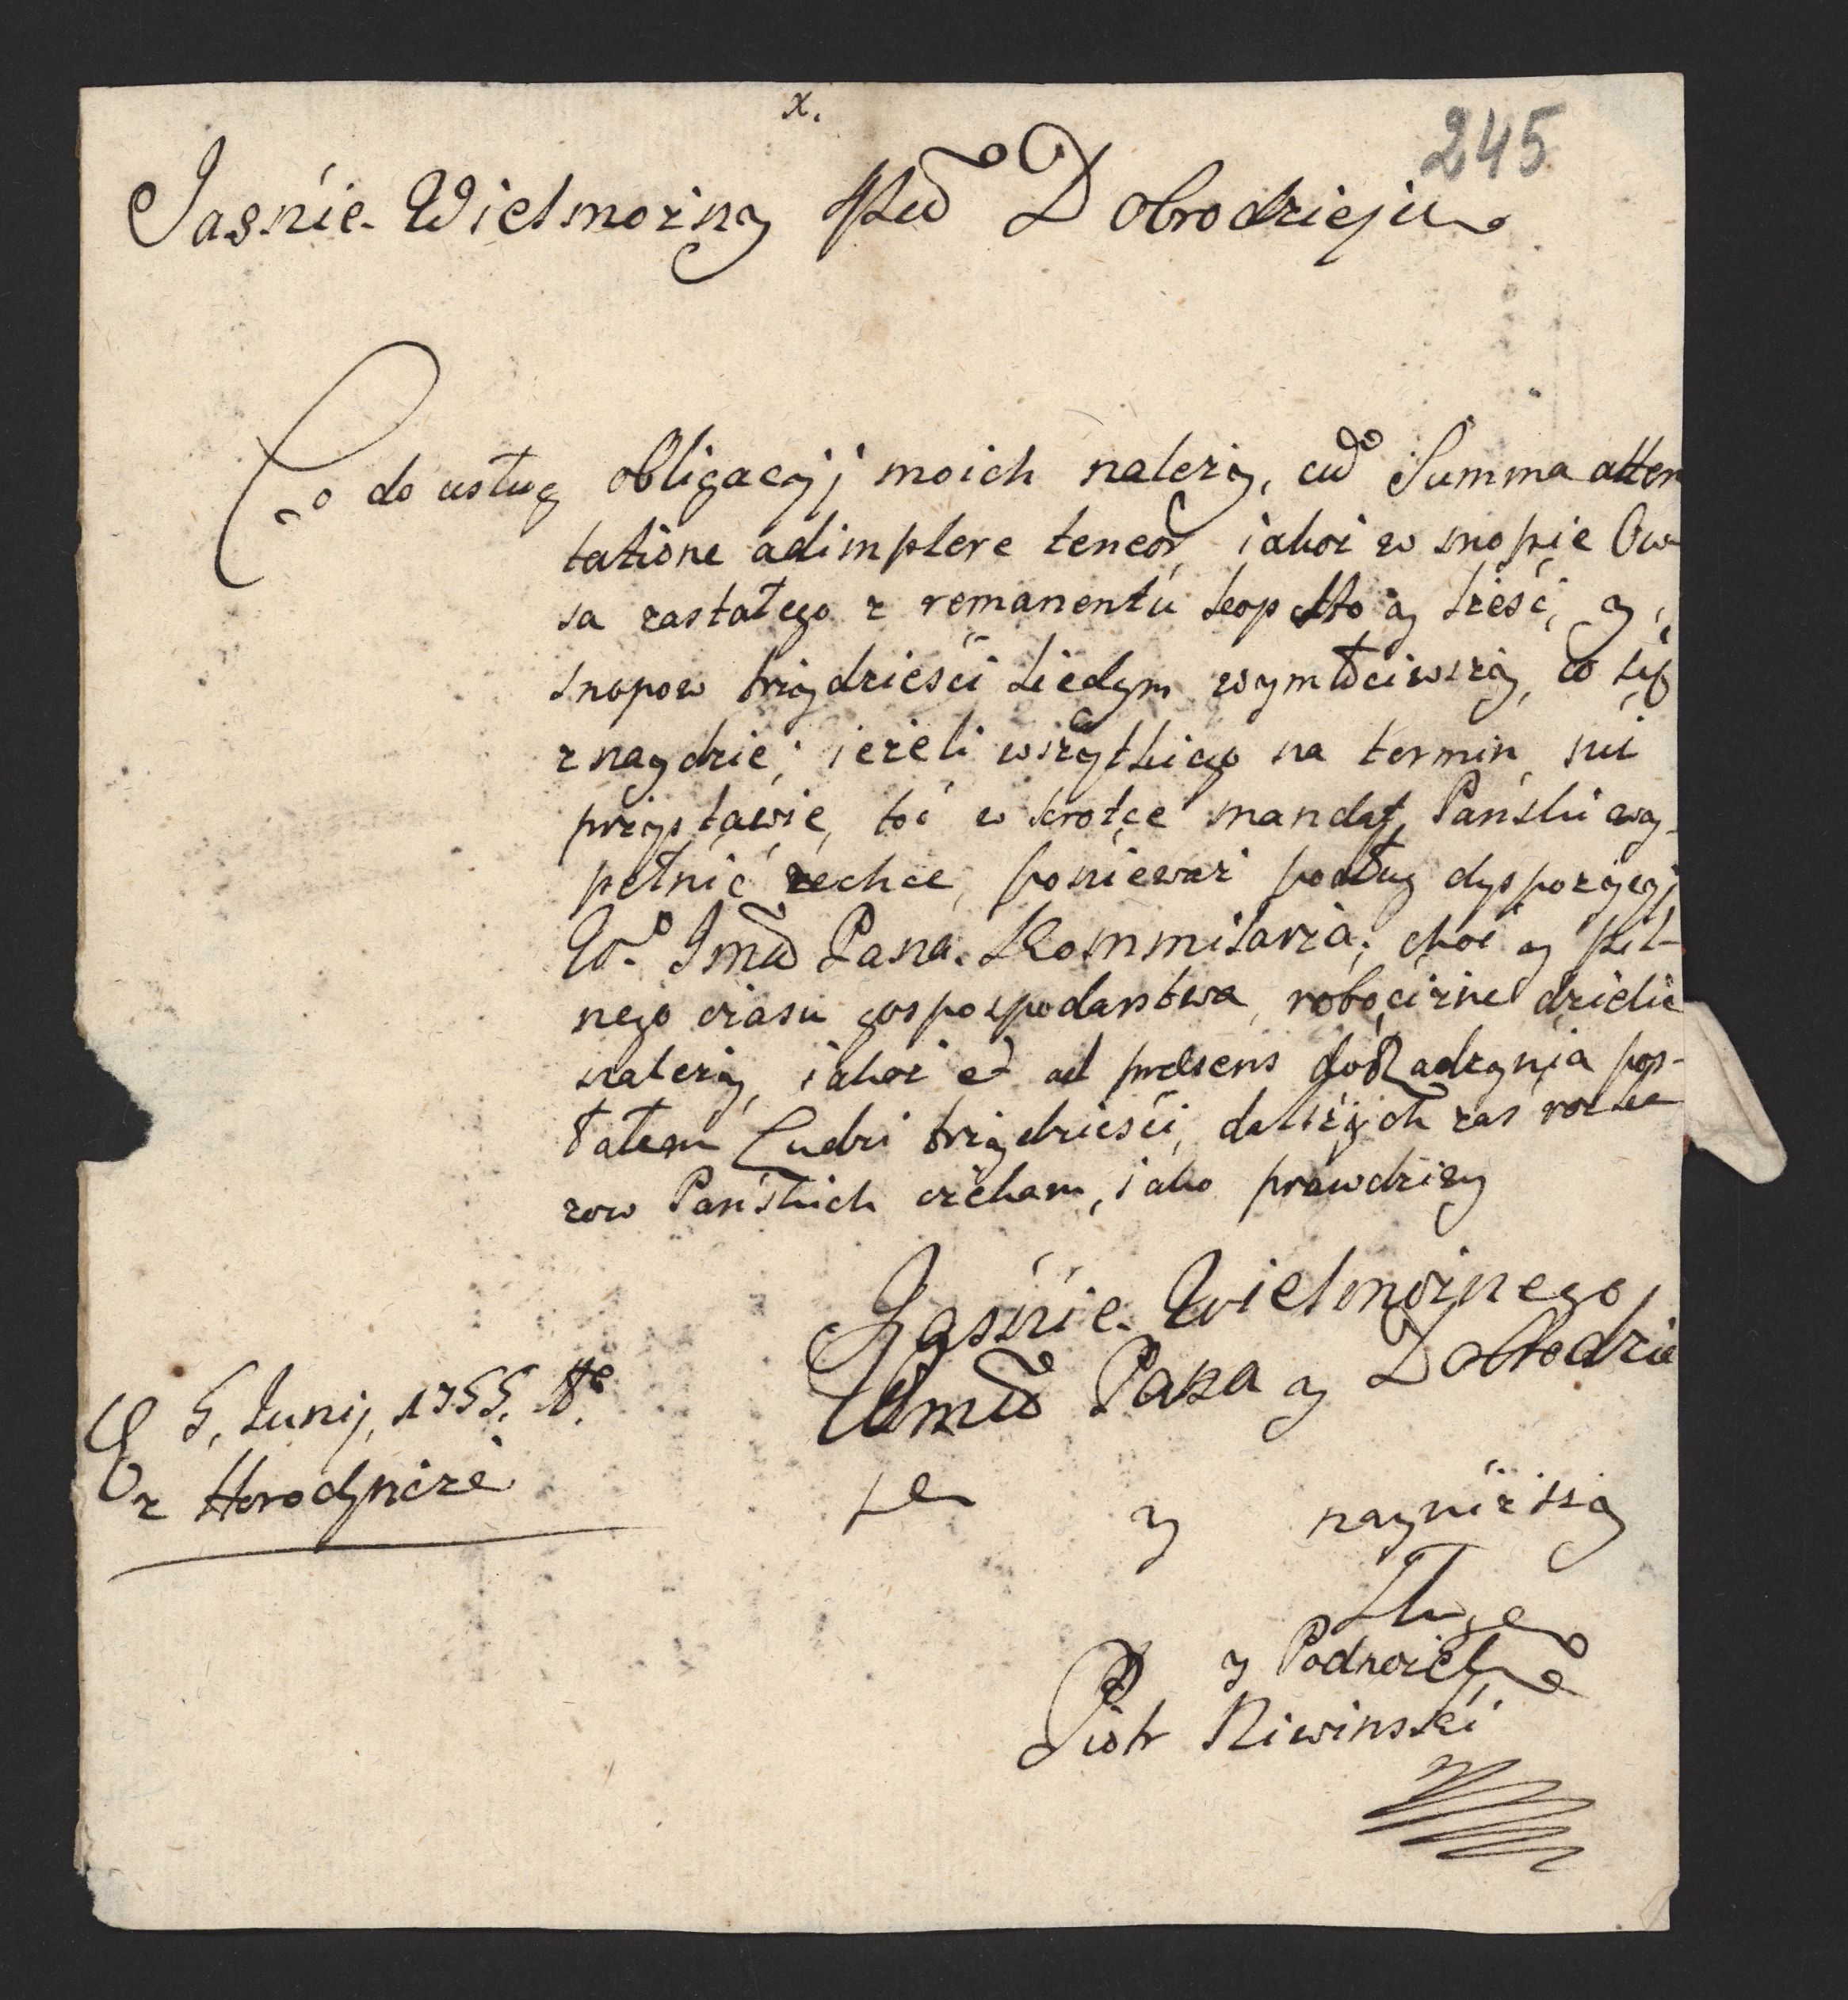 x.
245
Jaśnie Wielmożny Dobrodzieju
Co do usług obligacyj moich należy, cū Summa atten
tatione adimplere teneor, iakoż w snopie Ow
sa zastałego z remanentu kop sto y sześć, y
snopow trzydzieści siedym wymłociwszy, co się
znaydzie, ieżeli wszytkiego na termin nie
przystawie, toć w krotce mandat Panski wy-
pełnić zechce, ponieważ podług dyspozycyj
W° Jmci Pana Kommisarza, choć y pil-
nego czasu gospospodarstwa, robocizne dzielić
należy, iakoż et ad praesens do Radzynia pos-
łałem Ludzi trzydzieści, dalszych zaś rozka
zow Panskich czekam, iako prawdziwy
Jaśnie Wielmożnego
Wmci Pana y Dobrodzie
ja
y nayniższy
Sługa
y Podnożek
Piotr Niwinski
5. Junij, 1755.
z Horodyszcze